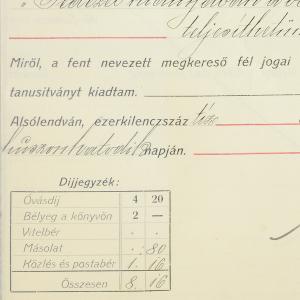 teljesíthetün
Miről, a fent nevezett megkereső fél jogai
tanusitványt kiadtam.
Alsólendván, ezerkilenczszáz tíz
huszonhatodik napján.
Dijjegyzék:
Óvásdíj 4 20
Bélyeg a könyvön 2 —
Vitelbér . .
Másolat . 80
Közlés és postabér 1 16
Összesen 8 16